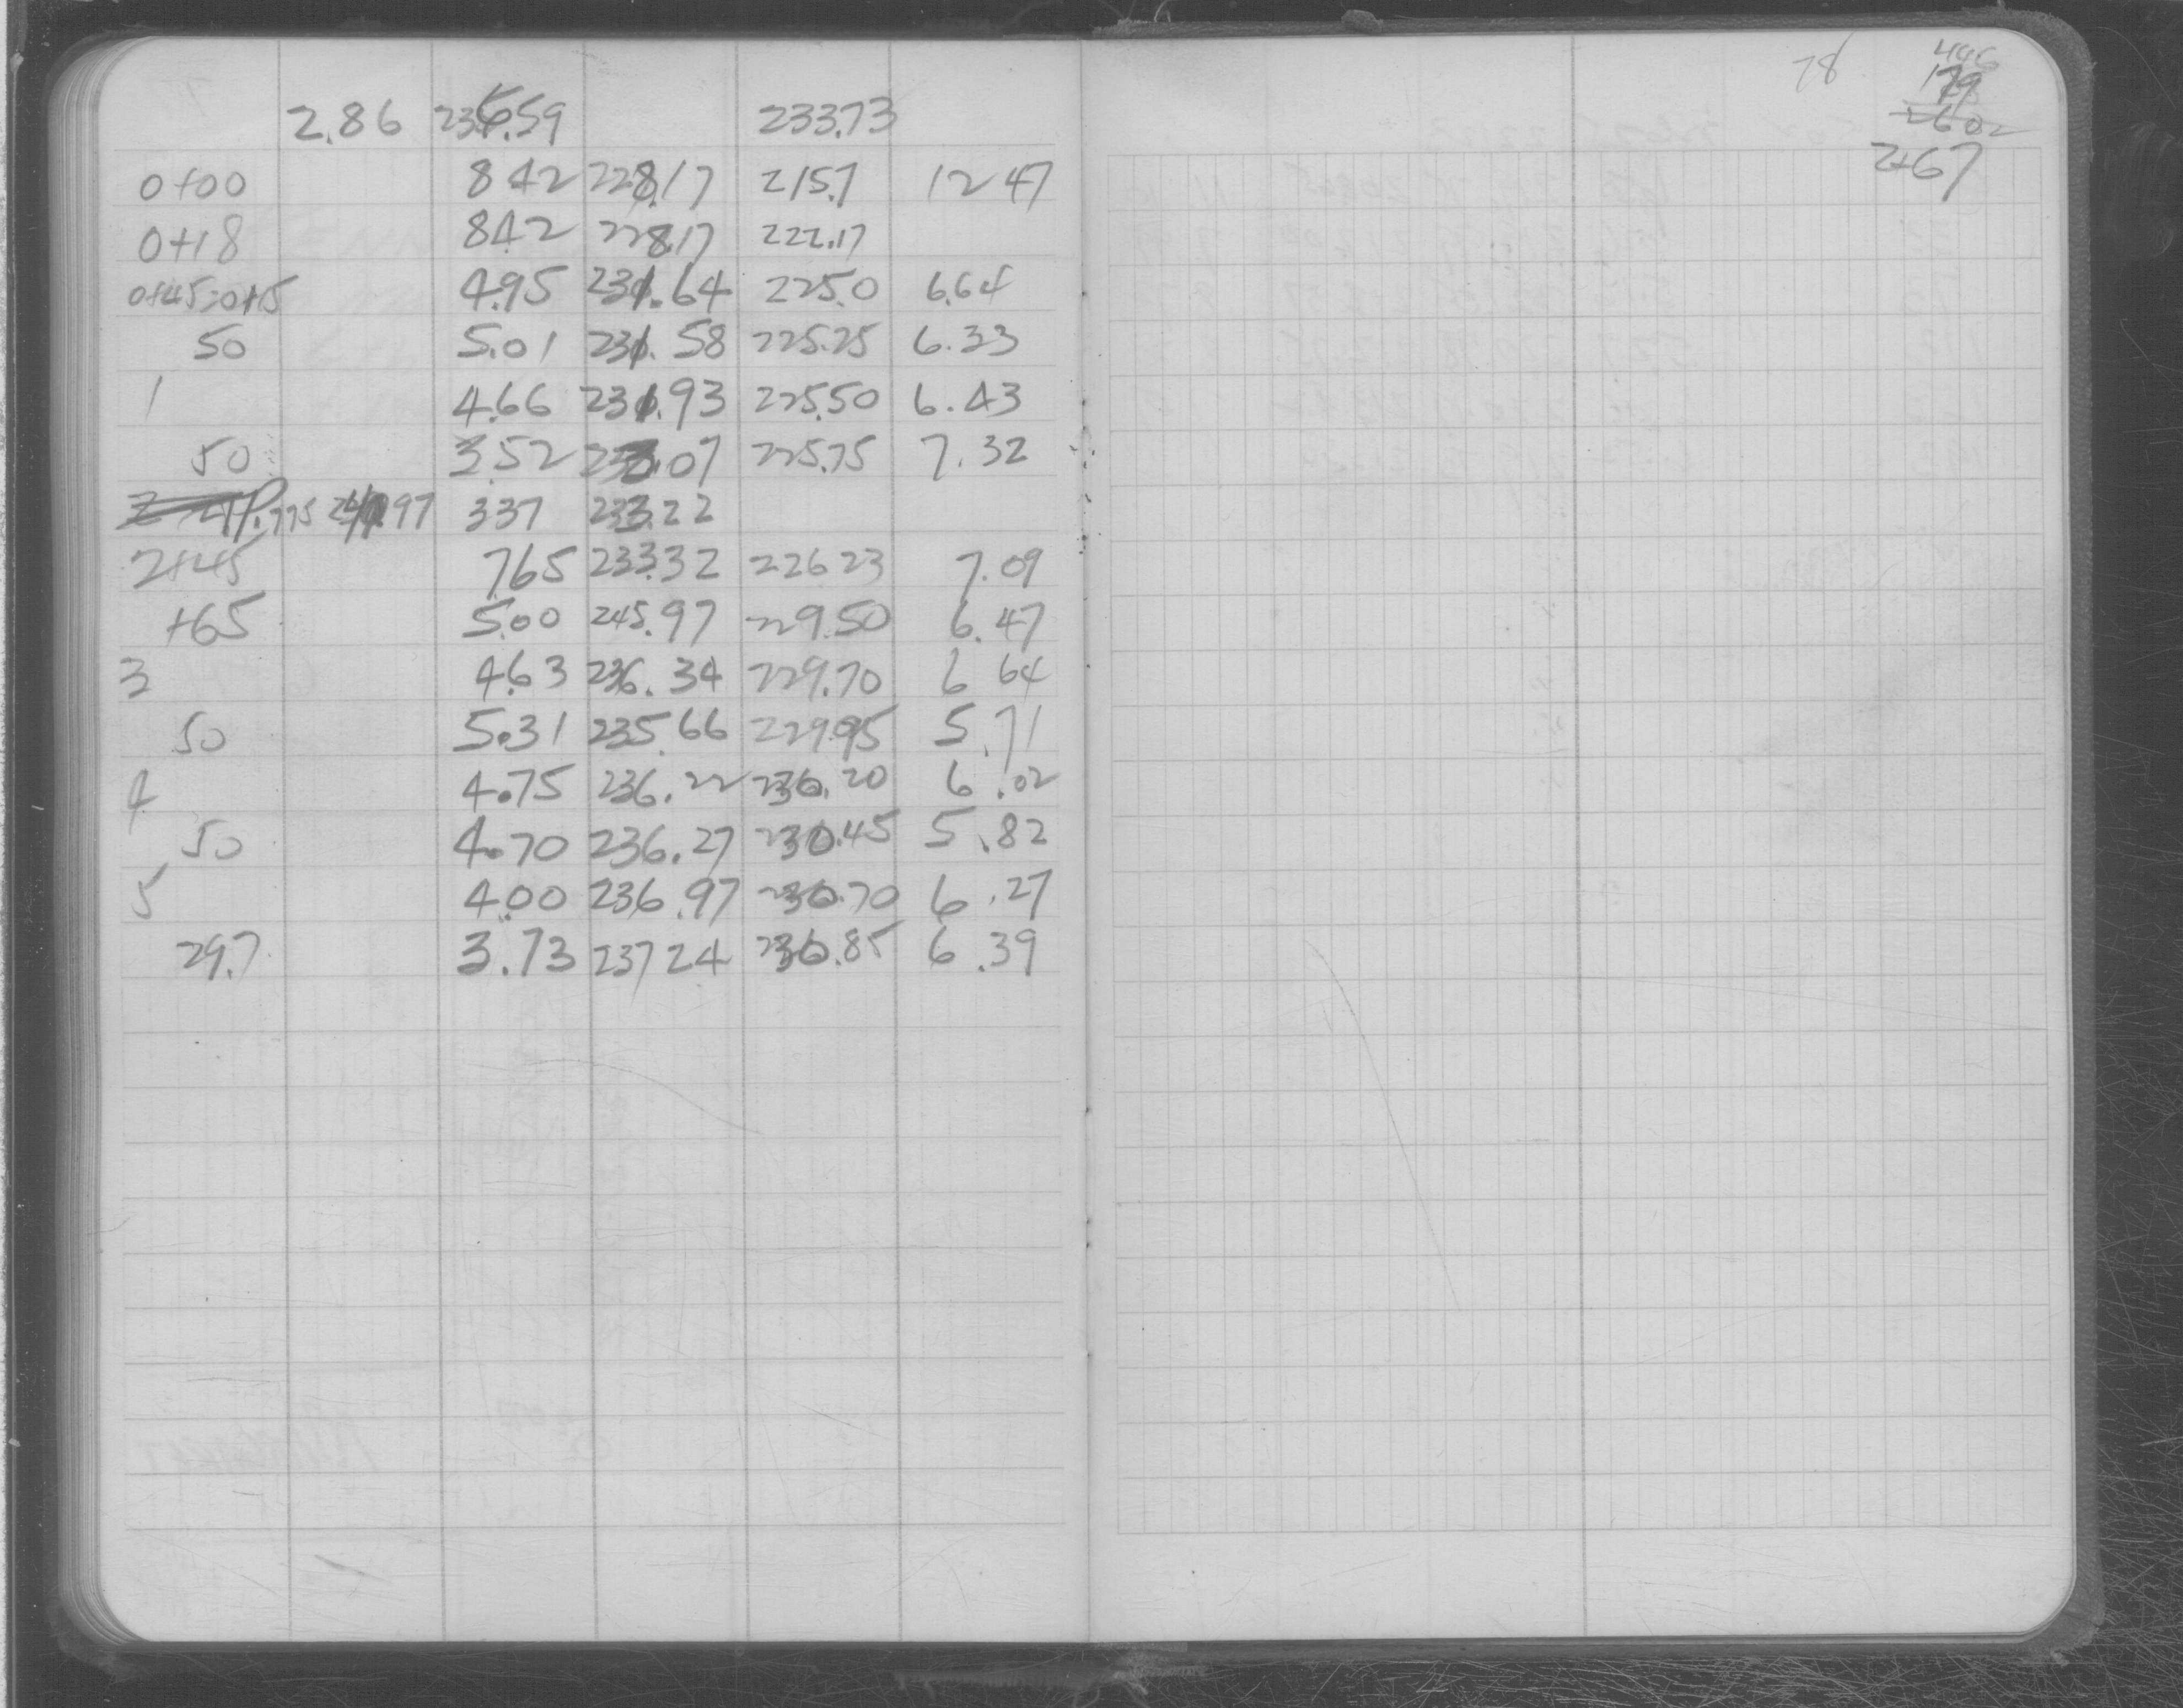 2.86 236.59 233.73
0+00 842 228.17 215.7 12 47
0+18 842 228.17 222.17
0+45=0+15 4.95 231.64 225.0 6.64
50 5.01 231.58 225.25 6.33
1 4.66 231.93 225.50 6.43
50 3.52 233.07 225.75 7.32
T.P. 7.75 240.97 337 233.22
2+45 765 233.32 226 23 7.09
+65 5.00 245.97 229.50 6.47
3 4.63 236.34 229.70 6 64
50 5.31 235.66 229.95 5.71
4 4.75 236.22 230.20 6.02
50 4.70 236.27 230.45 5.82
5 4.00 236.97 230.70 6.27
29.7 3.73 237 24 230.85 6.39
78
446
179
2602
2+67